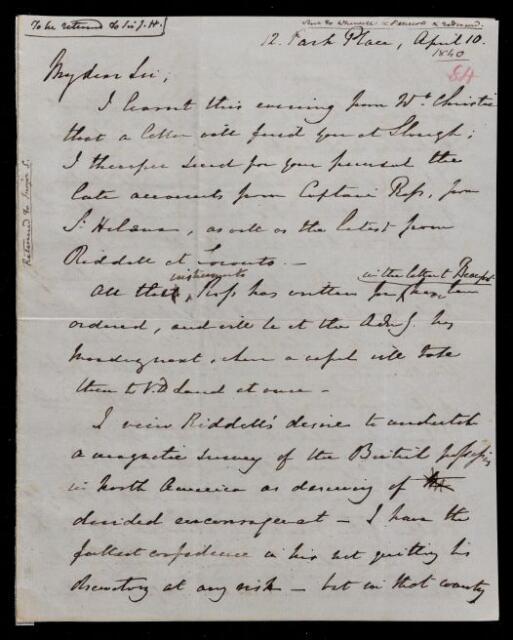 To be returned to Sir J. H.
12. Park Place, April 10.
1840
84
My dear Sir,
I learnt this evening from Wm Christie
that a letter will find you at Slough;
I therefore send for your perusal the
late accounts from Captain Ross, from
St Helena, as well as the latest from
Riddell at Toronto. –
instruments
in the letter to Beaufort
All that Ross has written for, has been
ordered, and will be at the Admy.
Monday next, when a vessel will take
them to V. D. Land at once –
I view Riddell's desire to undertake
a magnetic survey of the British possessions
in North America as deserving of the
decided encouragement – I have the
fullest confidence in his not quitting his
observatory at any risk – but in that country